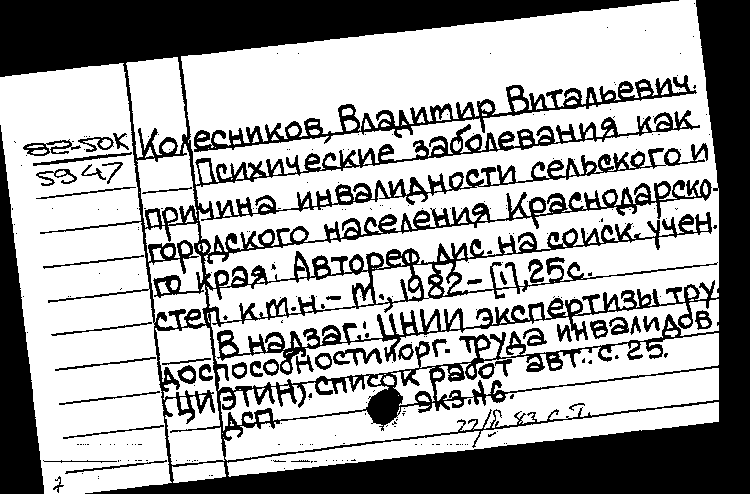 82-50К
5947
Колесников, Владимир Витальевич.
Психические заболевания как
причина инвалидности сельского и
городского населения Краснодарско-
го края: Автореф. дис. на соиск. учен.
степ. к.м.н. - М., 1982. - [1], 25с.
В надзаг.: ЦНИИ экспертизы тру-
доспособности и орг. труда инвалидов
(ЦИЭТИН). Список работ авт.: с. 25.
ДСП. Экз. №6.
83 с.т.